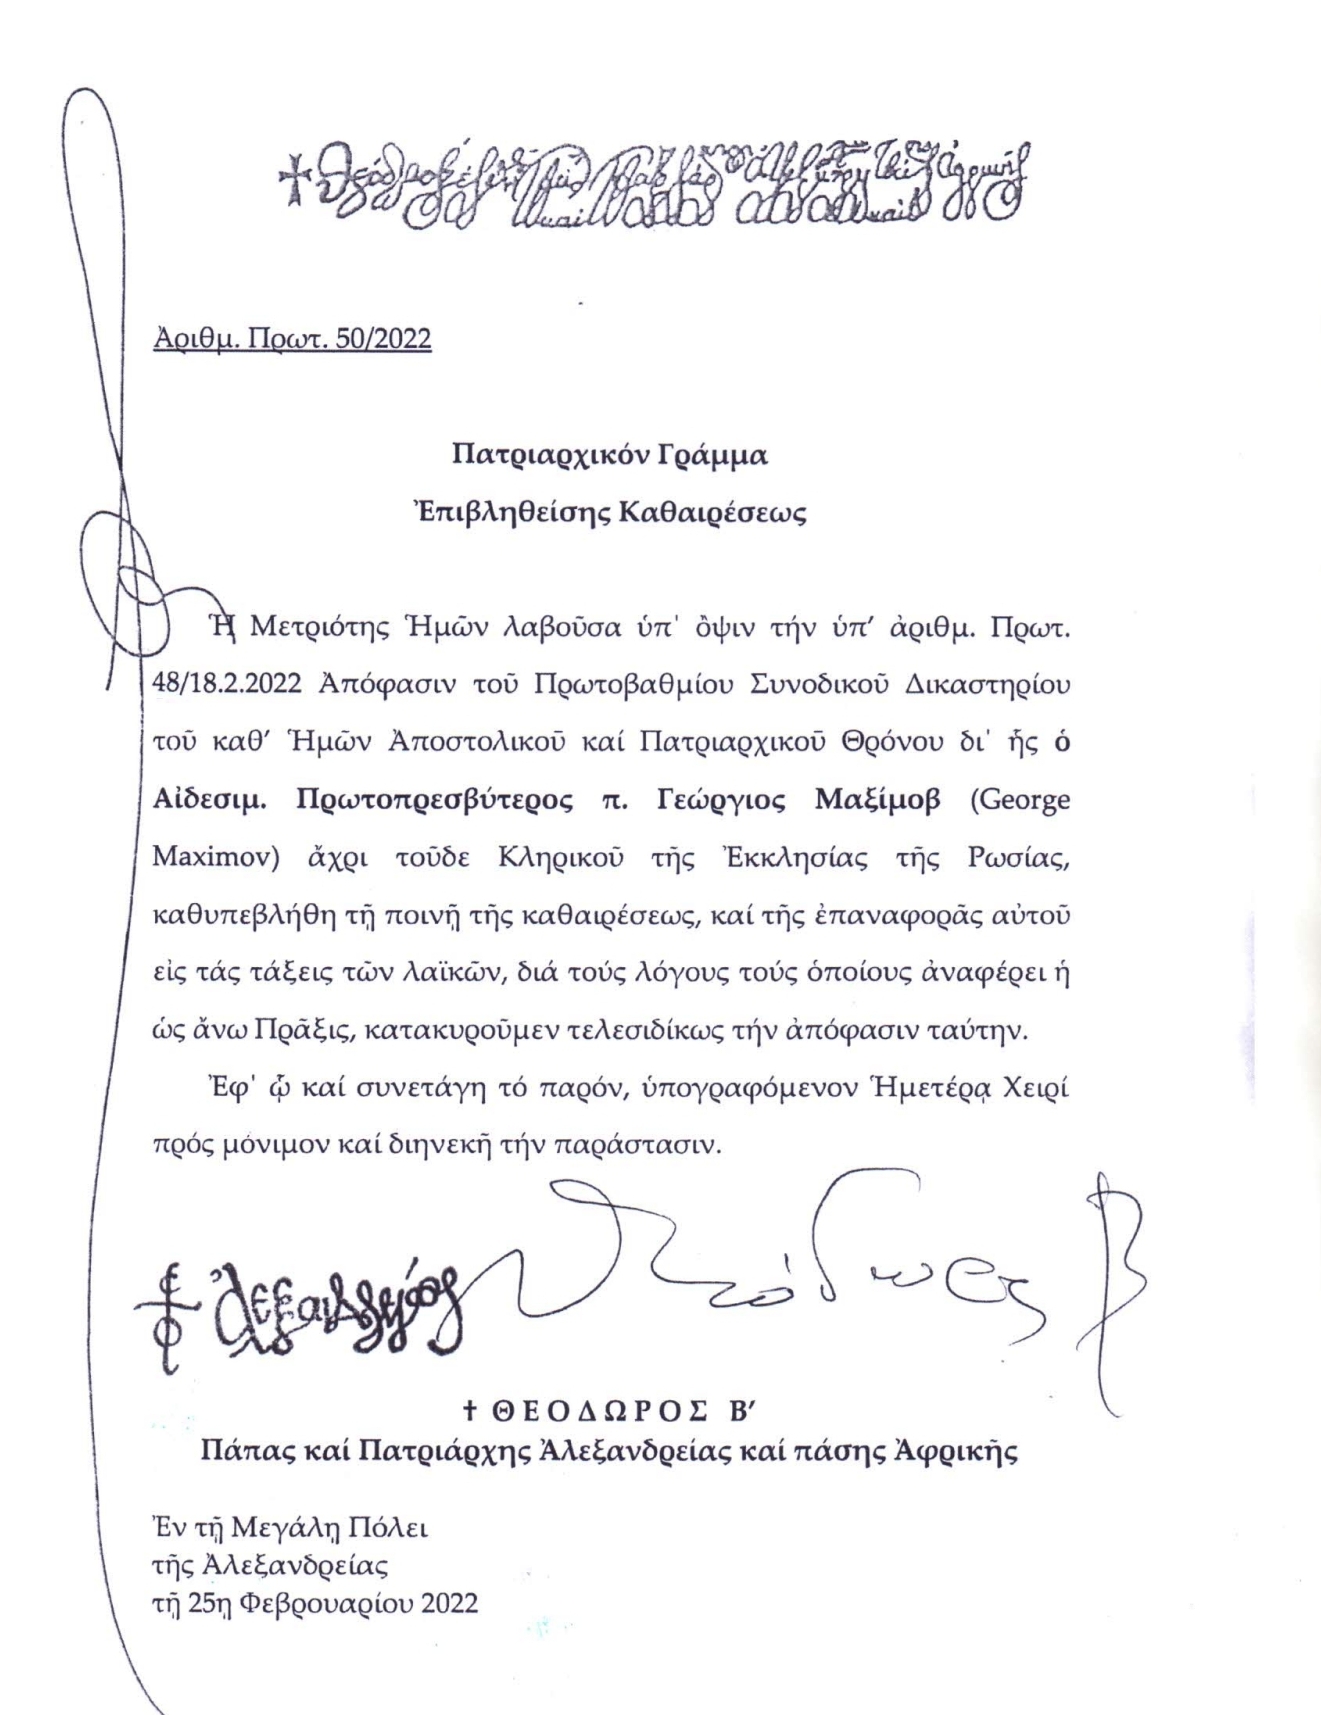 Ἀριθμ. Πρωτ. 50/2022
Πατριαρχικόν Γράμμα
Ἐπιβληθείσης Καθαιρέσεως
Ἡ Μετριότης Ἡμῶν λαβοῦσα ὑπ' ὄψιν τήν ὑπ’ ἀριθμ. Πρωτ.
48/18.2.2022 Ἀπόφασιν τοῦ Πρωτοβαθμίου Συνοδικοῦ Δικαστηρίου
τοῦ καθ’ Ἡμῶν Ἀποστολικοῦ καί Πατριαρχικοῦ Θρόνου δι' ἧς ὁ
Αἰδεσιμ. Πρωτοπρεσβύτερος π. Γεώργιος Μαξίμοβ (George
Maximov) ἄχρι τοῦδε Κληρικοῦ τῆς Ἐκκλησίας τῆς Ρωσίας,
καθυπεβλήθη τῇ ποινῇ τῆς καθαιρέσεως, καί τῆς ἐπαναφορᾶς αὐτοῦ
εἰς τάς τάξεις τῶν λαϊκῶν, διά τούς λόγους τούς ὁποίους ἀναφέρει ἡ
ὡς ἄνω Πρᾶξις, κατακυροῦμεν τελεσιδίκως τήν ἀπόφασιν ταύτην.
Ἐφ' ᾧ καί συνετάγη τό παρόν, ὑπογραφόμενον Ἡμετέρᾳ Χειρί
πρός μόνιμον καί διηνεκῆ τήν παράστασιν.
† ΘΕΟΔΩΡΟΣ Β’
Πάπας καί Πατριάρχης Ἀλεξανδρείας καί πάσης Ἀφρικῆς
Ἐν τῇ Μεγάλῃ Πόλει
τῆς Ἀλεξανδρείας
τῇ 25ῃ Φεβρουαρίου 2022